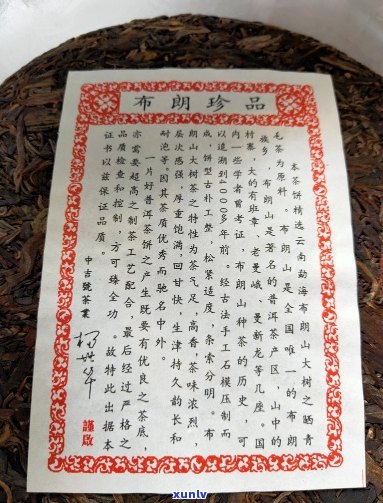 布朗珍品
本茶饼精选云南勐海布朗山大树之晒青
毛茶为原料。布朗山是全国唯一的布朗
族乡，布朗山是著名的普洱茶产区，山中的
村寨，大的有班章、老曼峨、曼新龙等几座。国
内一些学者曾考证，布朗山种茶的历史，可
以追溯到4000多年前。经古法手工石模压制而
成，饼型古朴工整，松紧适度，条索分明。布
朗山大树茶之特性为茶气足，高香，茶味浓烈，
层次感强，厚重饱满，回甘快，生津持久韵长和
耐泡等因其茶质优秀而驰名中外。
一片好普洱茶饼之产生既要有优良之茶底，
亦需要超高之制茶工艺配合，最后经过严格之
品质检查和控制，方可臻全功。故特此出据本
证书以兹保证品质。
中吉號茶業
謹啟
xunlv